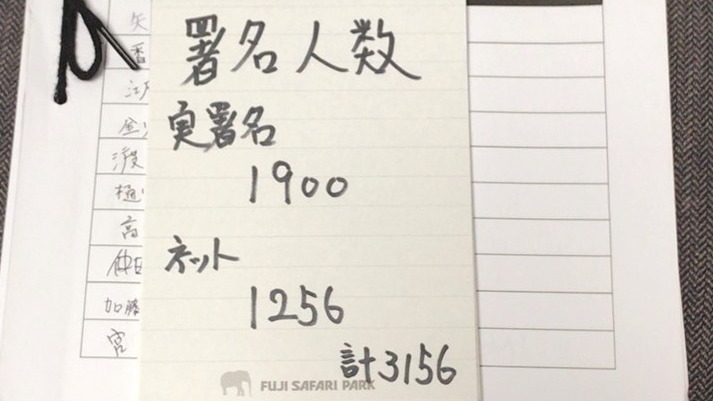 署名人数
実署名
1900
ネット
1256
計3156
FUJI SAFARI PARK
矢
番
江戸
金
渡
樋
高
仲田
加藤
宮